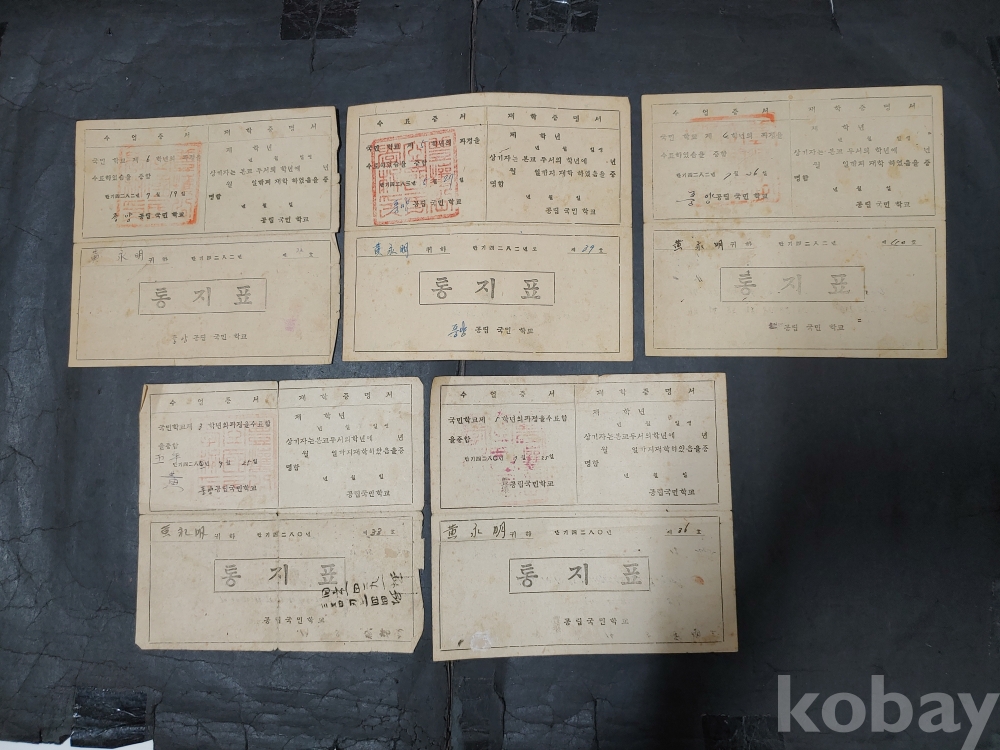 수 업 증 서
재 학 증 명 서
국민 학교 제 6 학년의 과정을
수료하였음을 증함
단기四二八二년 7 월 19 일
중앙 공립 국민 학교
제 학년
년 월 일생
상기자는 본교 두서의 학년에 년
월 일까지 재학 하였음을 증
명함
년 월 일
공립 국민 학교
黃 永 明 귀하 단기四二八二년 제 호
통 지 표
중앙 공립 국민 학교
수 료 증 서
재 학 증 명 서
국민 학교 제 학년의 과정을
수료하였음을 증함
단기四二八二년 월 일
공립 국민 학교
제 학년
년 월 일생
상기자는 본교 두서의 학년에 년
월 일까지 재학 하였음을 증
명함
년 월 일
공립 국민 학교
黃 永 明 귀하 단기四二八二년도 제 39 호
통 지 표
중앙 공립 국민 학교
수 업 증 서
재 학 증 명 서
국민 학교 제 학년의 과정을
수료하였음을 증함
단기四二八二년 7 월 26 일
중앙 공립 국민 학교
제 학년
년 월 일생
상기자는 본교 두서의 학년에 년
월 일까지 재학 하였음을 증
명함
년 월 일
공립 국민 학교
黃 永 明 귀하 단기四二八二년 제 호
통 지 표
공립 국민 학교
수 업 증 서
재 학 증 명 서
국민학교제 3 학년의과정을수료함
을증함
년 7 월 25 일
공립국민학교
제 학년
년 월 일생
상기자는본교두서의학년에 년
월 일까지재학하였음을증
명함
년 월 일
공립국민학교
黃 永 明 귀하 단기四二八〇년 제 38 호
통 지 표
공립국민학교
수 업 증 서
재 학 증 명 서
국민학교제 학년의과정을수료함
을증함
단기四二八〇년 월 25 일
공립국민학교
제 학년
년 월 일생
상기자는본교두서의학년에 년
월 일까지재학하였음을증
명함
년 월 일
공립국민학교
黃 永 明 귀하 단기四二八〇년 제 36 호
통 지 표
공립국민학교
kobay